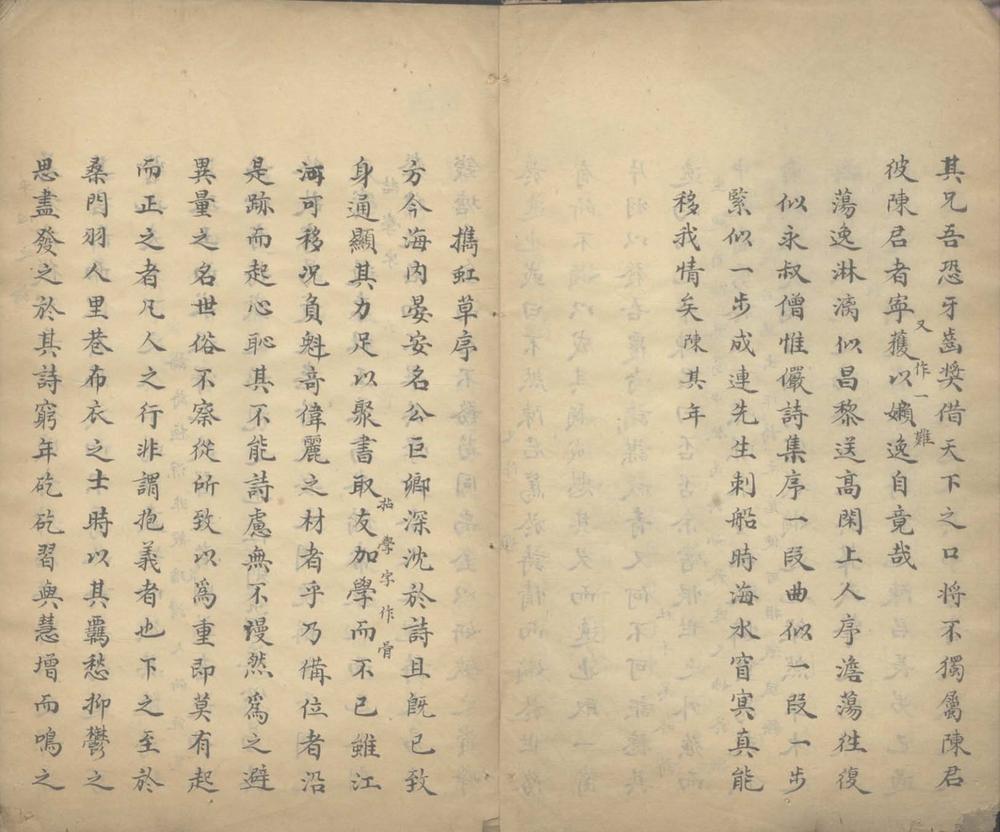 其兄吾恐牙齒奬借天下之口將不獨屬陳君
彼陳君者寧獲以嬾逸自竟哉
又作一難
蕩逸淋漓似昌黎送高閑上人序澹蕩徃復
似永叔僧惟儼詩集序一段曲似一段一步
緊似一步成連先生刺船時海水窅冥真能
移我情矣陳其年
擕虹草序
方今海內晏安名公巨鄉深沈於詩且旣已致
身通顯其力足以聚書取友加學而不已雖江
拈學字作骨
河可移況負魁竒偉麗之材者乎乃備位者沿
是跡而起心恥其不能詩慮無不謾然爲之避
異量之名世俗不察從所致以爲重即莫有起
而正之者凡人之行非謂抱義者也下之至於
桑門羽人里巷布衣之士時以其羈愁抑鬱之
思盡發之於其詩窮年矻矻習與慧增而鳴之